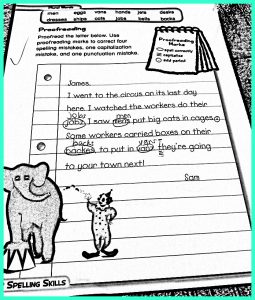 men eggs vans hands jets desks
dresses ships cats jobs bells backs
Proofreading
Proofread the letter below. Use
proofreading marks to correct four
spelling mistakes, one capitalization
mistake, and one punctuation mistake.
Proofreading
Marks
spell correctly
capitalize
add period
James,
I went to the circus on its last day
here I watched the workers do their
jobs
jobz. I saw mens put big cats in cages
Some workers carried boxes on their
backs vans
backes to put in vanz they're going
to your town next!
Sam
SPELLING SKILLS